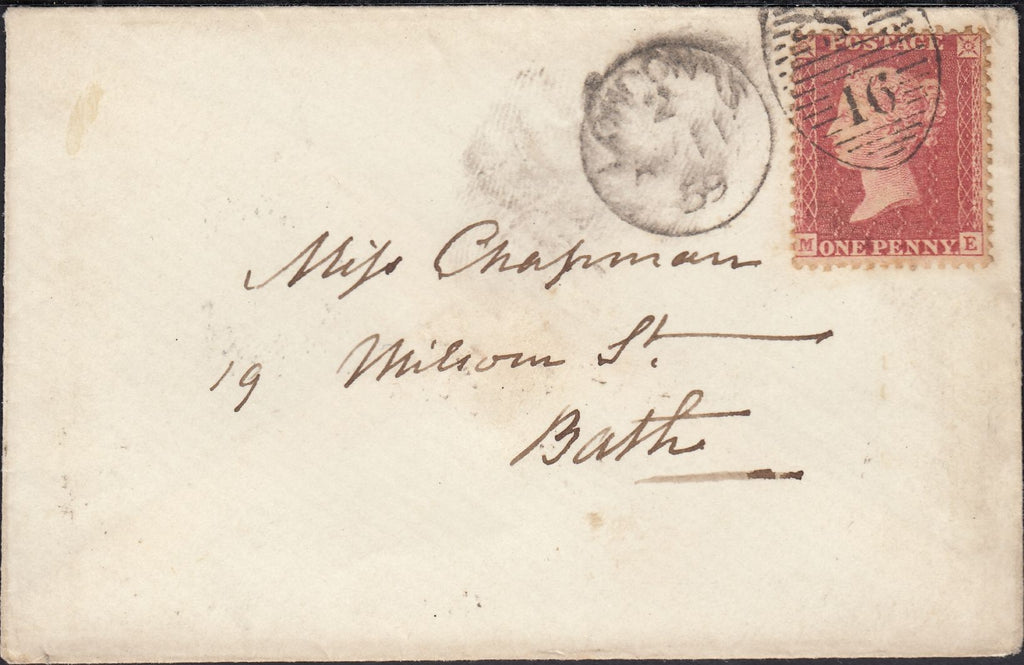 POSTAGE
16
LONDON
2
58
M ONE PENNY E
Miss Chapman
19 Milsom St.
Bath